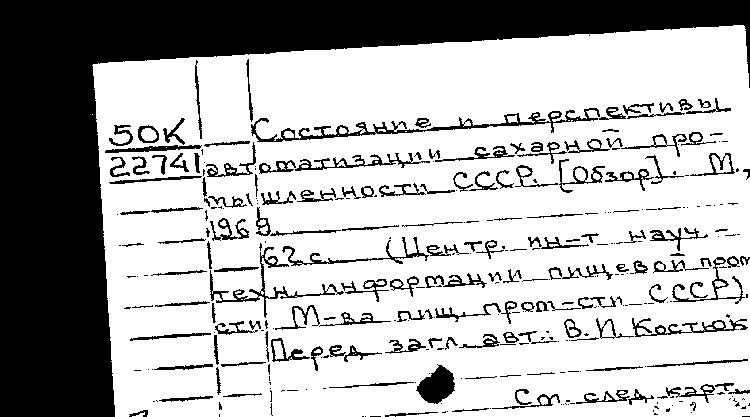 50К
22741
Состояние и перспективы
автоматизации сахарной про-
мышленности СССР. [Обзор]. М.,
1969.
62 с. (Центр. ин-т науч.-
техн. информации пищевой пром
сти М-ва пищ. пром-сти СССР).
Перед загл. авт.: В.И. Костюк
См. след. карт.